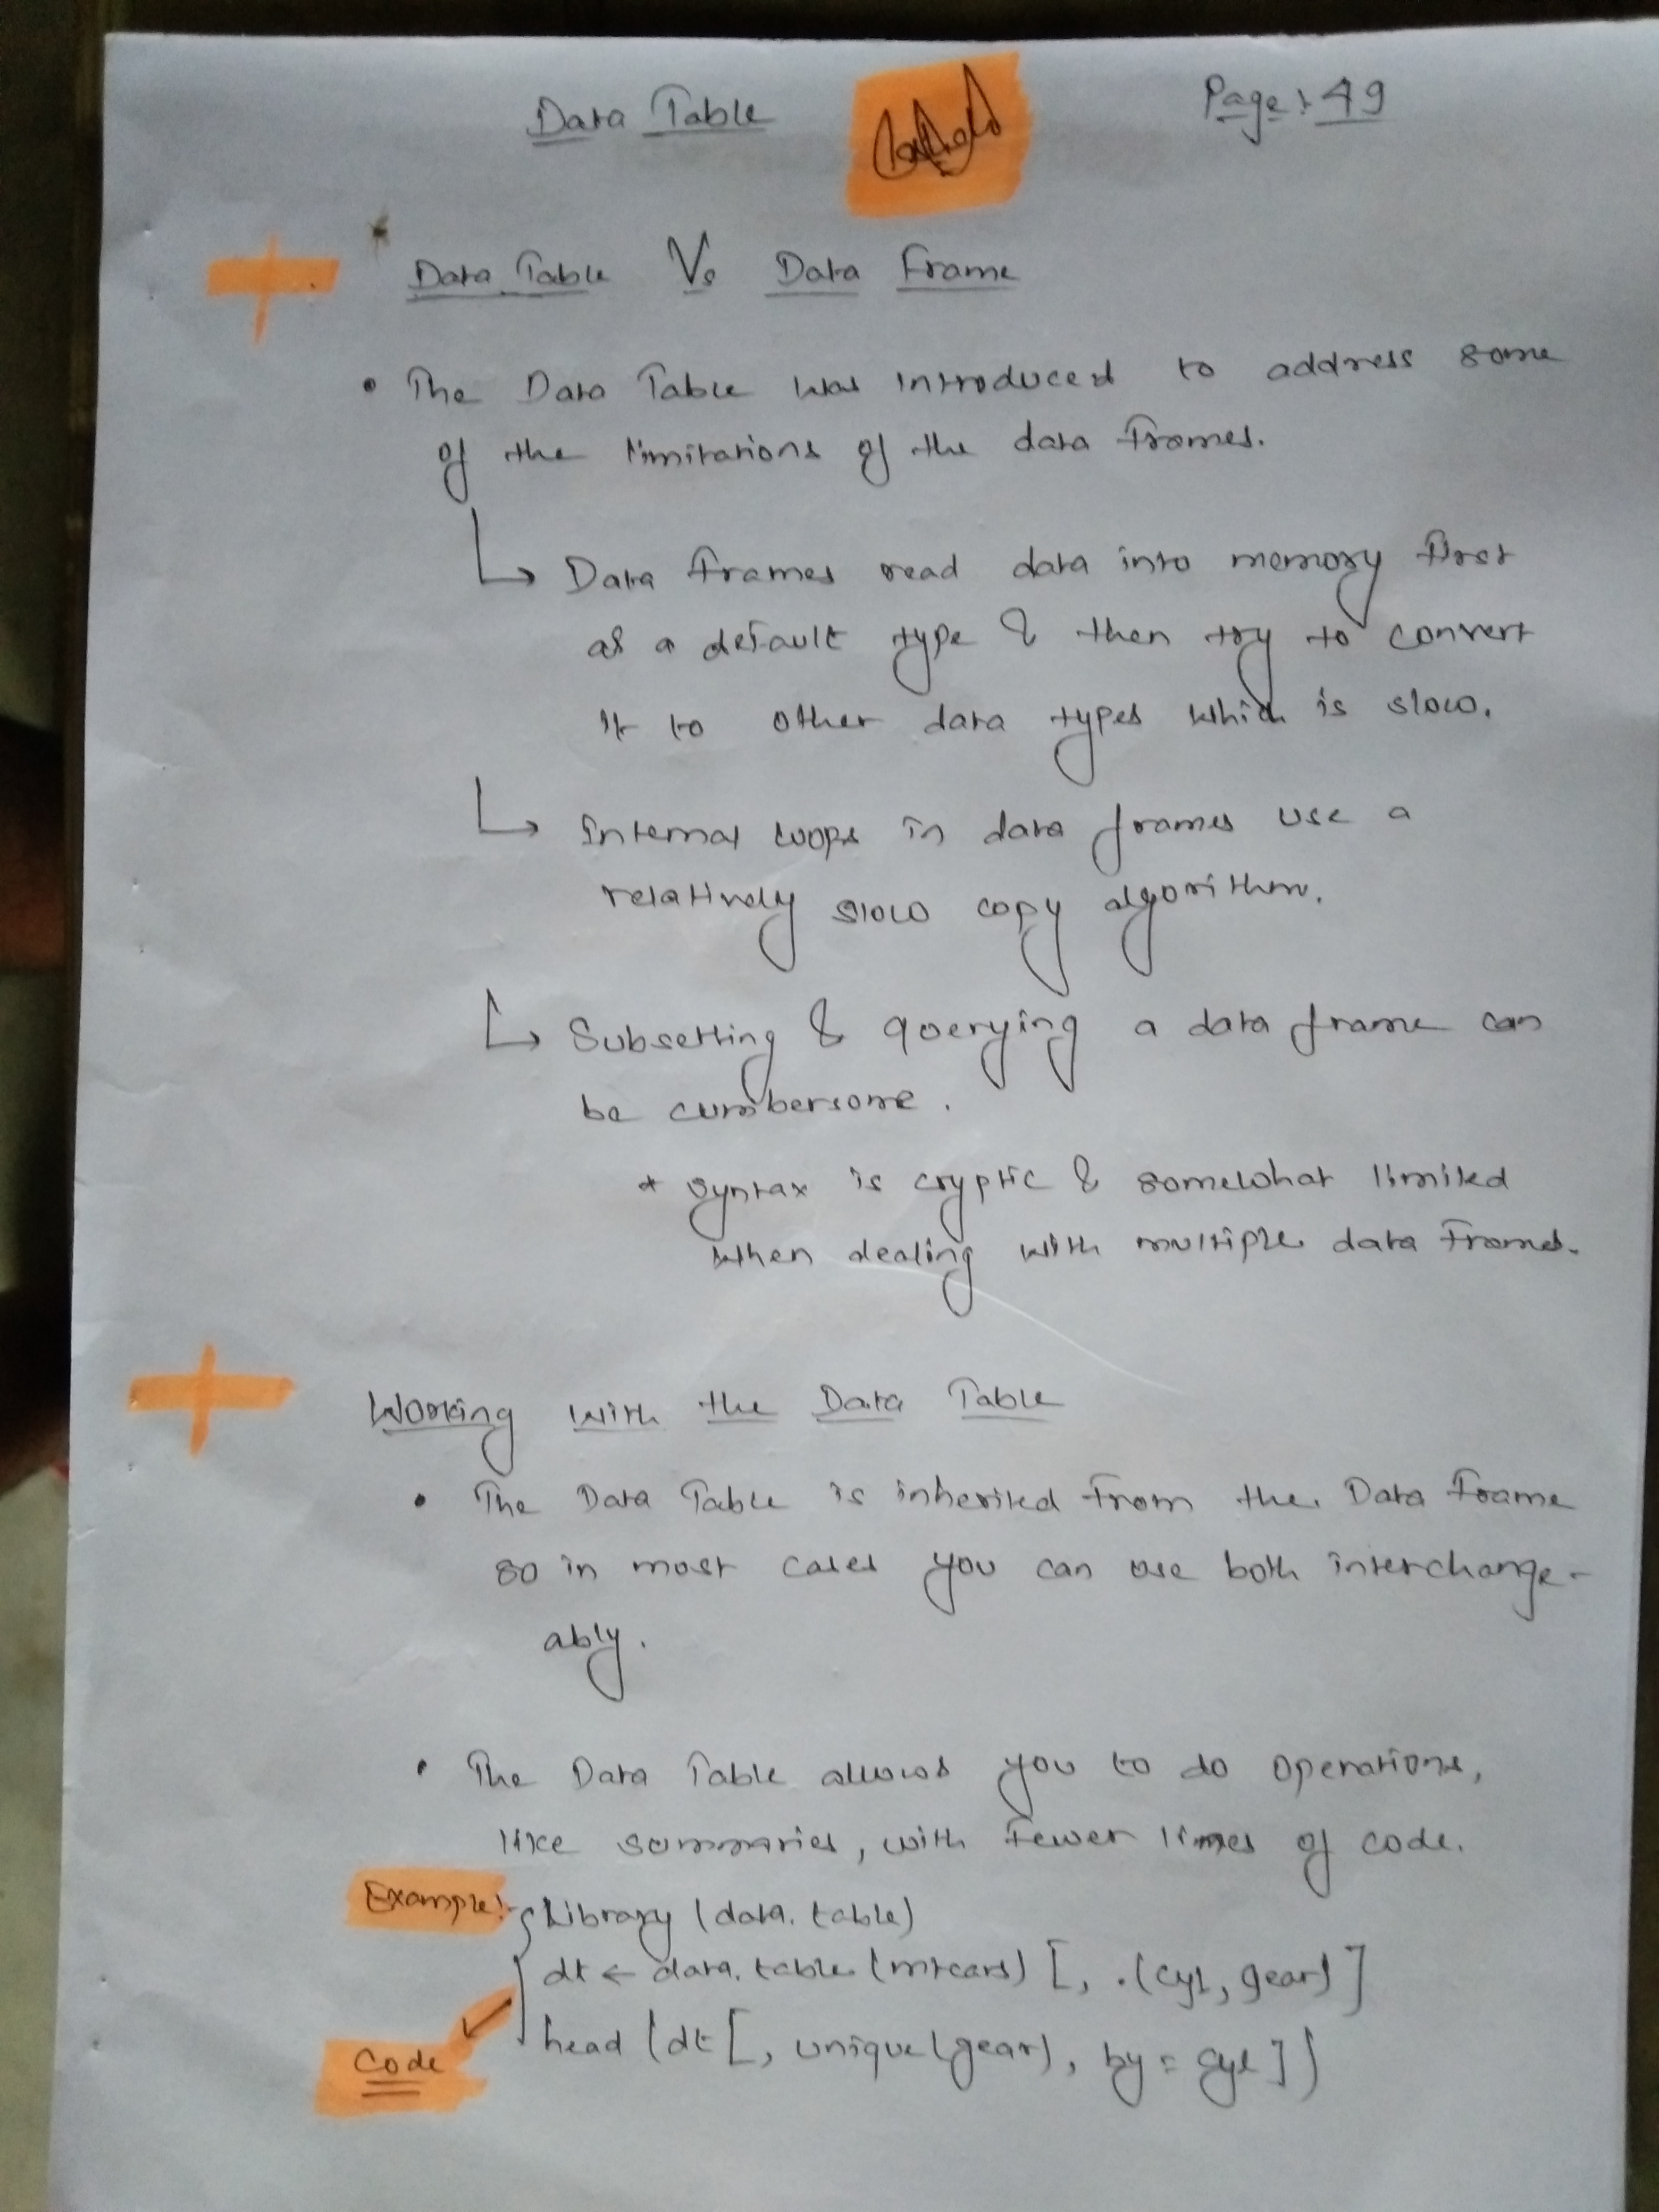 Data Table
Page: 49
Data Table Vs Data Frame
• The Data Table was introduced to address some
of the limitations of the data frames.
↳ Data frames read data into memory first
as a default type & then try to convert
it to other data types which is slow.
↳ Internal loops in data frames use a
relatively slow copy algorithm.
↳ Subsetting & querying a data frame can
be cumbersome.
* Syntax is cryptic & somewhat limited
when dealing with multiple data frames.
Working with the Data Table
• The Data Table is inherited from the Data Frame
so in most cases you can use both interchange-
ably.
• The Data Table allows you to do operations,
like summaries, with fewer lines of code.
Example:- Library (data.table)
dt ← data.table (mtcars) [, .(cyl, gear)]
head (dt[, unique(gear), by = cyl])
Code